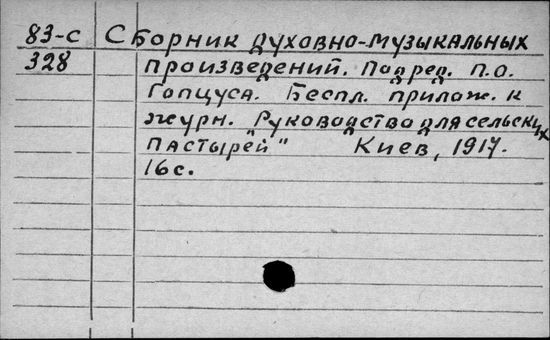 83-с Сборник духовно-музыкальных
328 произведений. Под ред. П.О.
Гапцуса. Беспл. прилож. к
журн. "Руководства для сельских
пастырей" Киев, 1917.
16с.